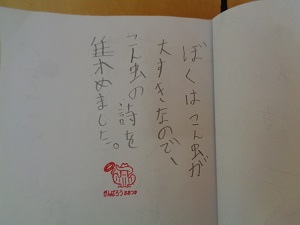 ぼくはこん虫が
大すきなので、
こん虫の詩を
集めました。
がんばろう